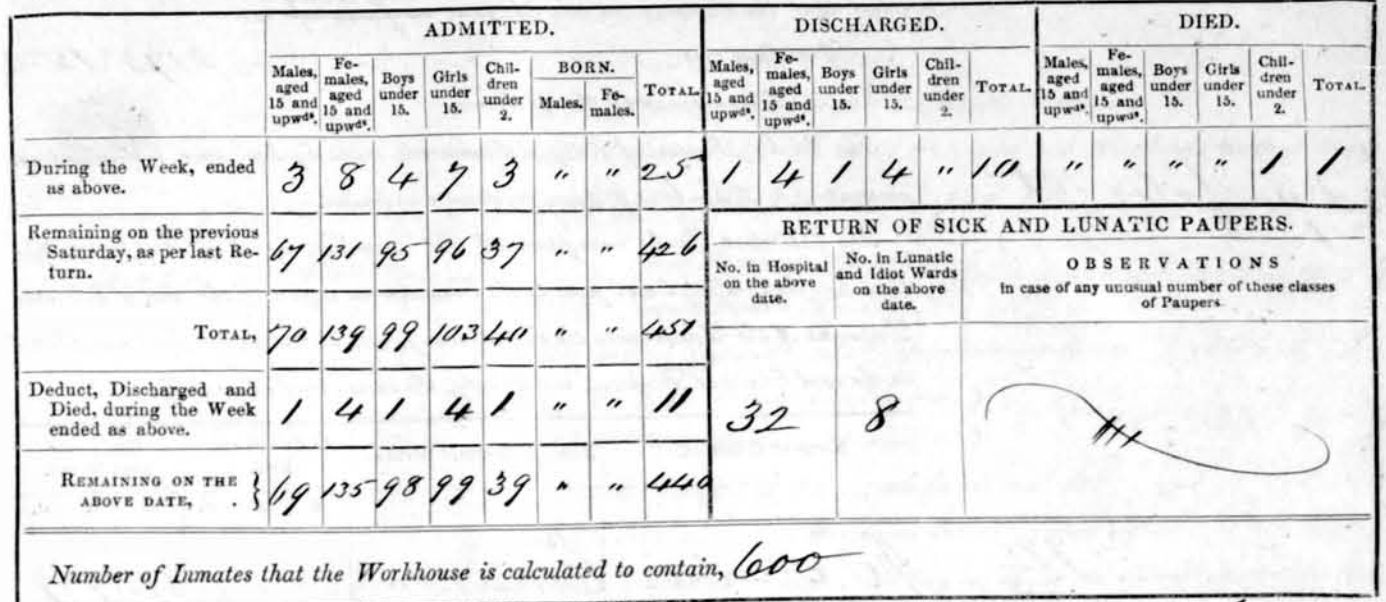 ADMITTED. DISCHARGED. DIED.
Males, aged 15 and upwds. Females, aged 15 and upwds. Boys under 15. Girls under 15. Children under 2. BORN. Males. Females. TOTAL. Males, aged 15 and upwds. Females, aged 15 and upwds. Boys under 15. Girls under 15. Children under 2. TOTAL. Males, aged 15 and upwds. Females, aged 15 and upwds. Boys under 15. Girls under 15. Children under 2. TOTAL.
During the Week, ended as above. 3 8 4 7 3 " " 25 1 4 1 4 " 10 " " " " 1 1
Remaining on the previous Saturday, as per last Return. 67 131 95 96 37 " " 426
TOTAL, 70 139 99 103 40 " " 451
Deduct, Discharged and Died, during the Week ended as above. 1 4 1 4 1 " " 11
REMAINING ON THE ABOVE DATE, . } 69 135 98 99 39 " " 440
RETURN OF SICK AND LUNATIC PAUPERS.
No. in Hospital on the above date. No. in Lunatic and Idiot Wards on the above date. OBSERVATIONS in case of any unusual number of these classes of Paupers
32 8
Number of Inmates that the Workhouse is calculated to contain, 600